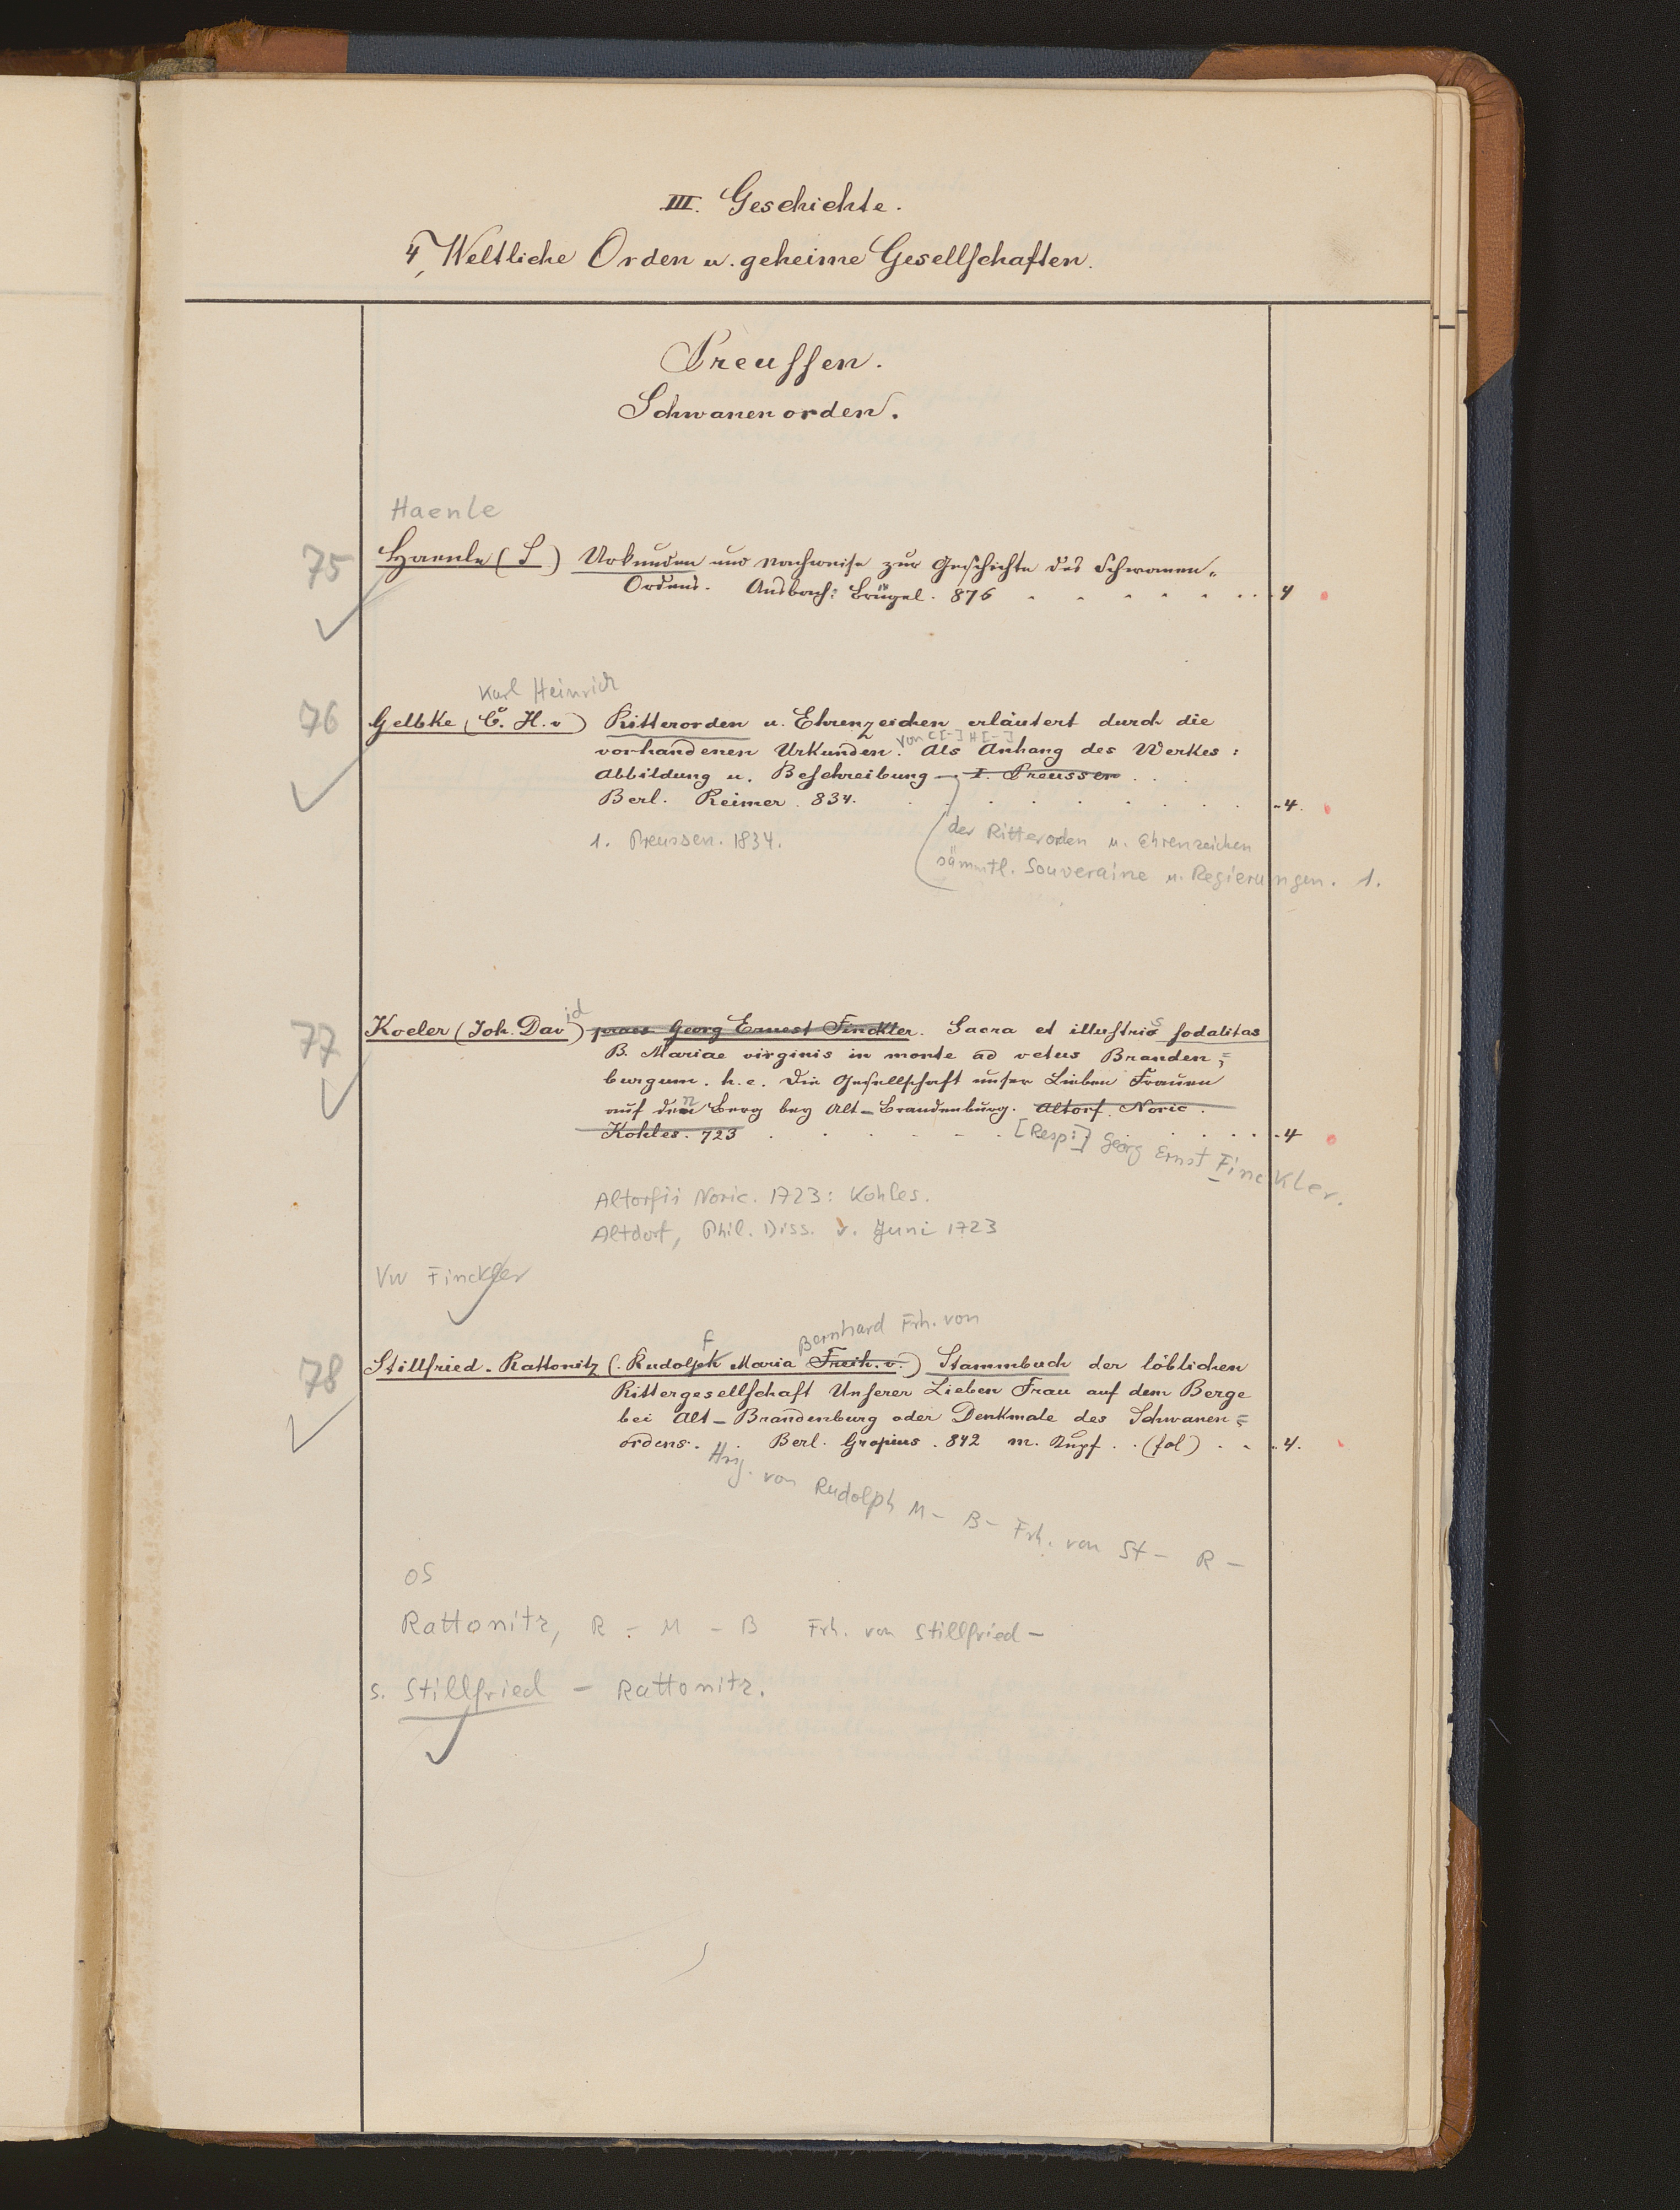 III. Geschichte.
4, Weltliche Orden u. geheime Gesellschaften.
Preussen.
Schwanenorden.
Haenle
75 Haenle (S) Urkunden und Nachweise zur Geschichte des Schwanen-
Ordens. Ansbach: Brügel. 876 4
Karl Heinrich
76 Gelbke (C. H. v) Ritterorden u. Ehrenzeichen erläutert durch die
von C[-] H[-]
vorhandenen Urkunden. Als Anhang des Werkes:
Abbildung u. Beschreibung – I. Preussen
Berl. Reimer. 834. 4.
1. Preussen. 1834. der Ritterorden u. Ehrenzeichen
sämmtl. Souveraine u. Regierungen. 1.
77 Koeler (Joh. David) praes Georg Ernest Finckler. Sacra et illustris sodalitas
B. Mariae virginis in monte ad vetus Branden=
burgum. h.e. Die Gesellschaft unser Lieben Frauen
auf den Berg bey Alt-Brandenburg. Altorf. Noric.
Kohles. 723 4
[Resp:] Georg Ernst Finckler.
Altorfii Noric. 1723: Kohles.
Altdorf, Phil. Diss. v. Juni 1723
Vw Finckler
f Bernhard Frh. von
78 Stillfried-Rattonitz (Rudolph Maria Freih. v.) Stammbuch der löblichen
Rittergesellschaft Unserer Lieben Frau auf dem Berge
bei Alt-Brandenburg oder Denkmale des Schwanen=
ordens. Berl. Gropius. 842 m. Kupf. (fol) 4.
Hrsg. von Rudolph M- B- Frh. von St- R-
OS
Rattonitz, R- M- B Frh. von Stillfried-
s. Stillfried - Rattonitz.